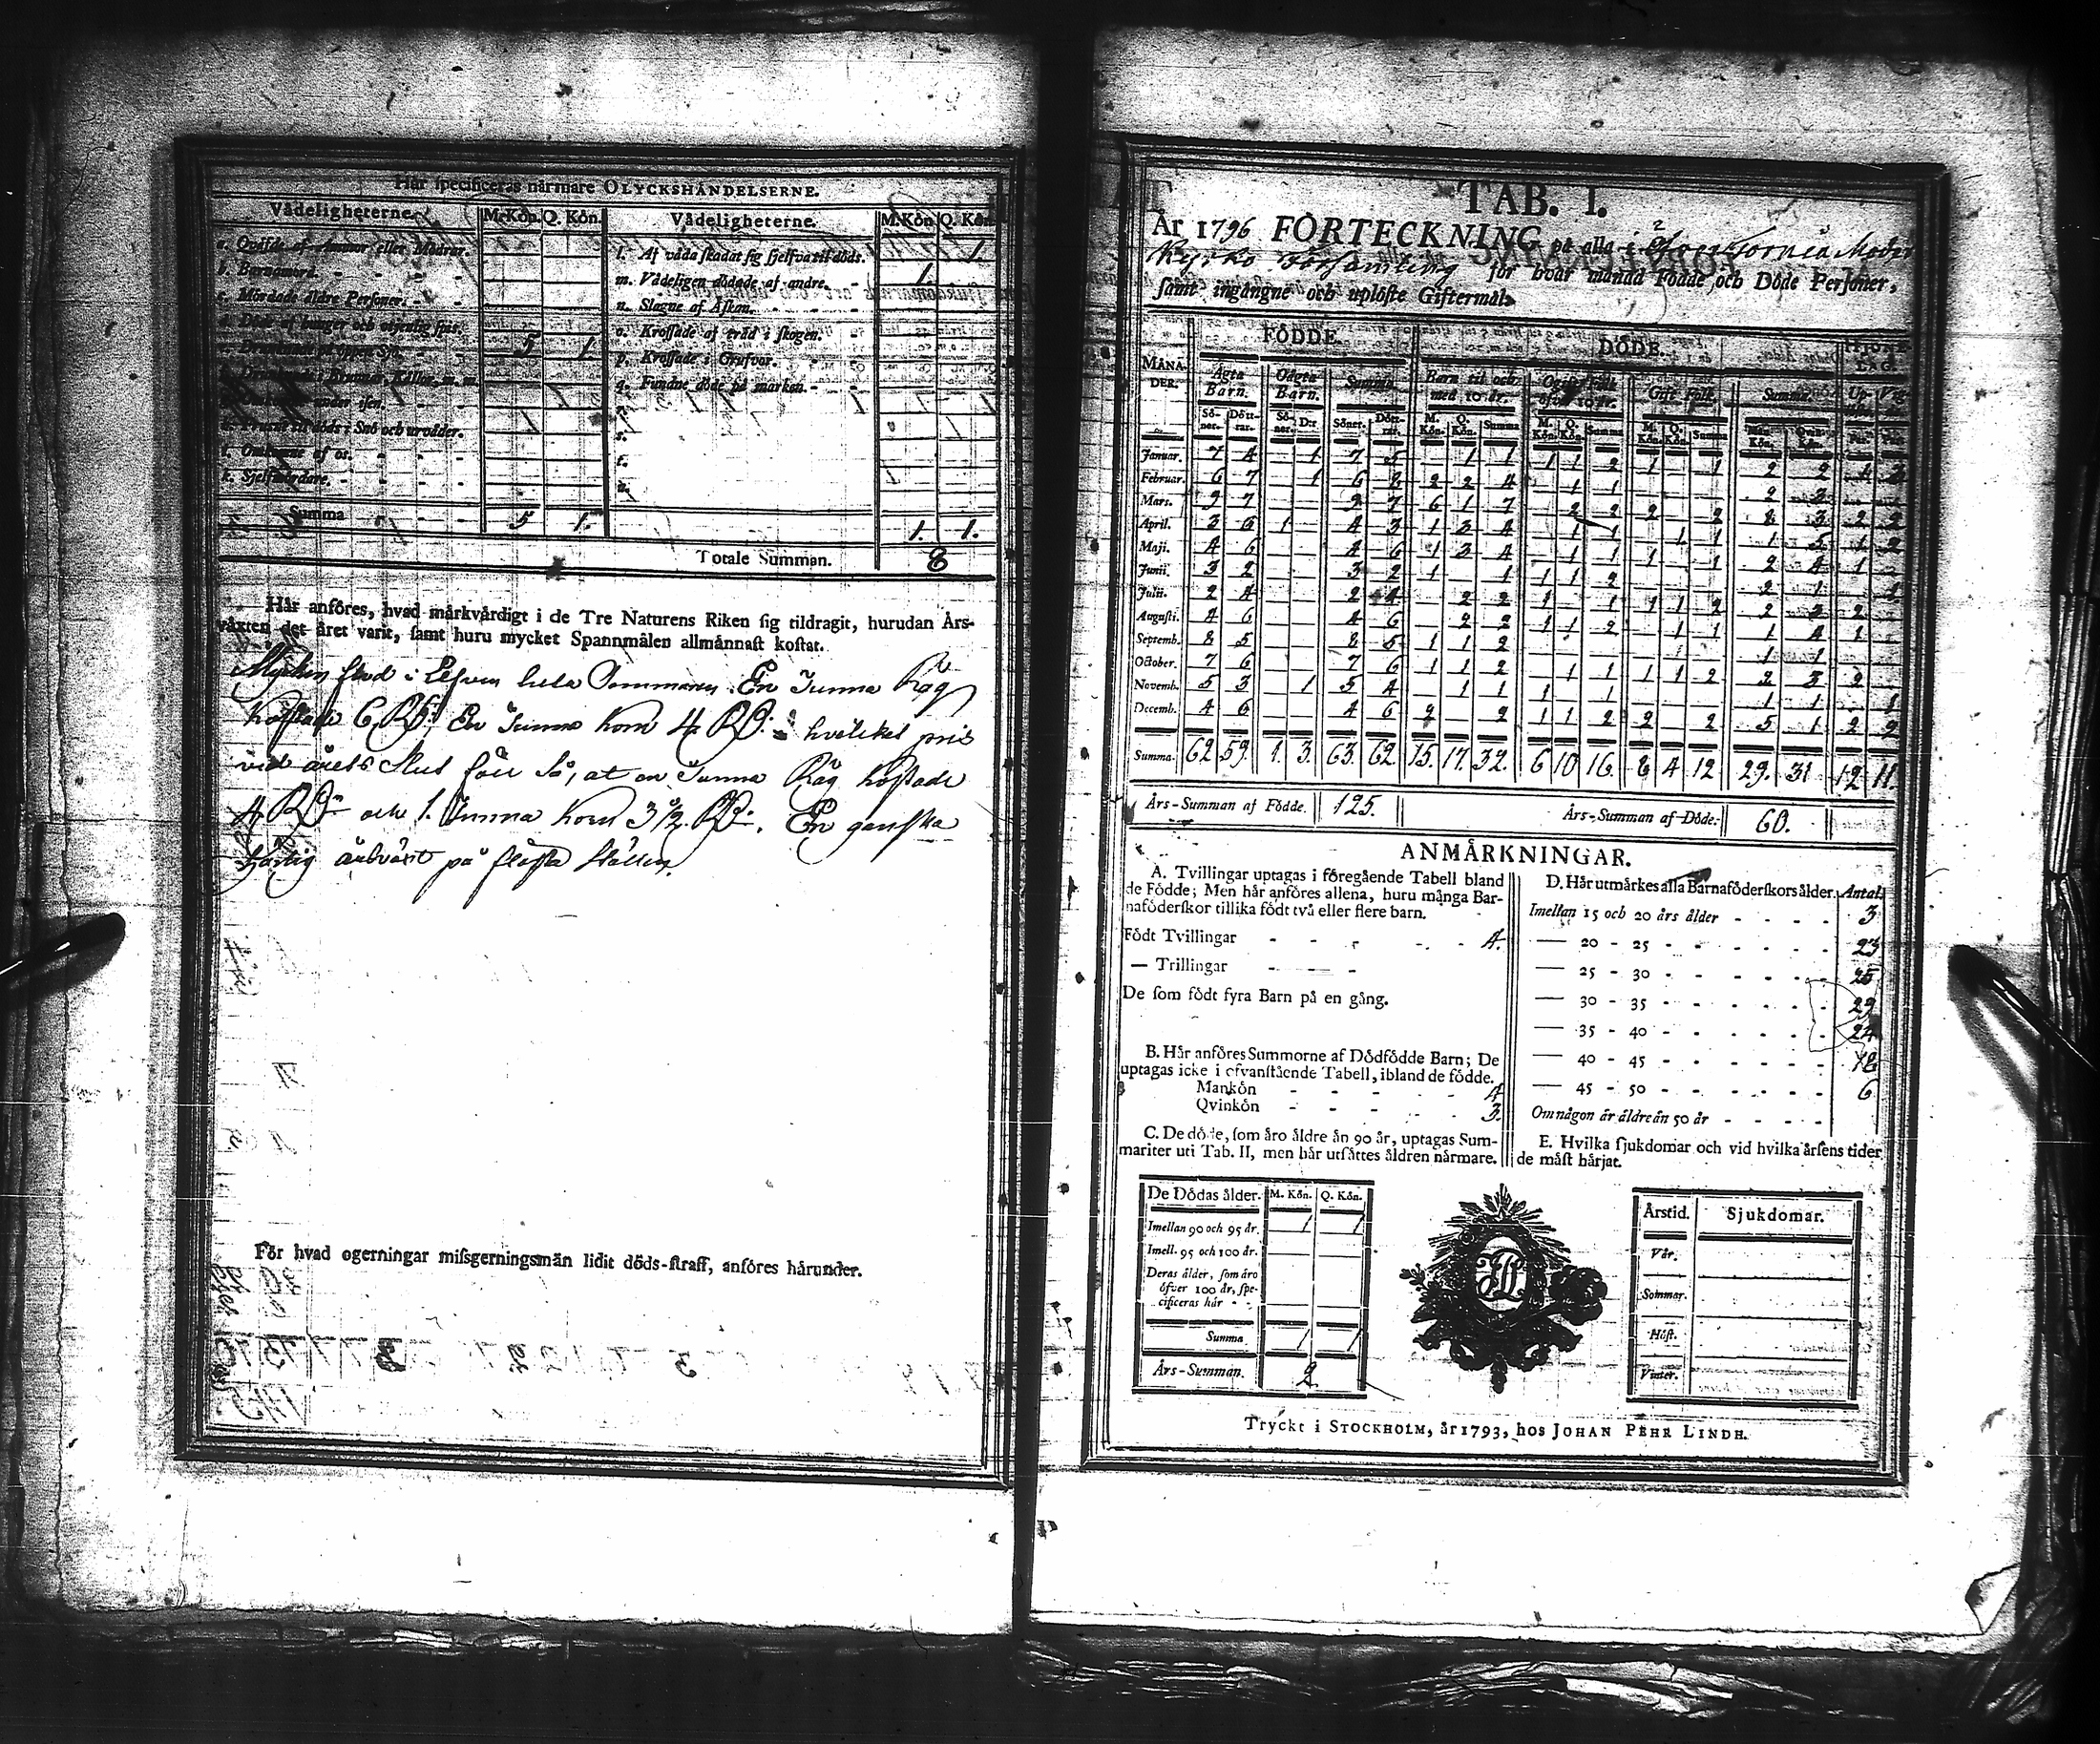 Här specificeras närmare OLYCKSHÄNDELSERNE.
Vådeligheterne. M.Kön. Q. Kön. Vådeligheterne. M.Kön Q. Kön
a. Qväfde af Ammor eller Mödrar. l. Af våda skadat sig sjelfva til döds. 1.
b. Barnamord. m. Vådeligen dödade af andre. 1.
c. Mördade äldre Personer. n. Slagne af Åskan.
d. Döde af hunger och otjenlig spis. o. Krossade af träd i skogen.
e. Drunknade på öppen Sjö. 5 1. p. Krossade i Grufvor.
q. Fundne döde på marken.
h. Frusne til döds i Snö och urväder. s.
i. Omkomne af os. t.
k. Sjelfmördare. u.
Summa 5 1. 1. 1.
Totale Summan. 8
Här anföres, hvad märkvärdigt i de Tre Naturens Riken sig tildragit, hurudan Års-
växten det året varit, samt huru mycket Spannmålen allmännast kostat.
Mycken flod i Elfven hela Sommaren. En Tunna Råg
kostade 6 RD: En Tunna Korn 4 RD: hvilket pris
vid årets slut föll så, at en Tunna Råg kostade
4 RD: och 1. Tunna Korn 3 1/2 RD:. En ganska
härlig årsväxt på flästa ställen.
För hvad ogerningar missgerningsmän lidit döds-straff, anföres härunder.
TAB. I.
År 1796 FÖRTECKNING på alla i Öfver Torneå Moder
Kyrko Församling för hvar månad Födde och Döde Personer,
samt ingångne och uplöste Giftermål.
FÖDDE. DÖDE. HJONE-LAG.
MÅNA-DER. Ägta Barn. Oägta Barn. Summa. Barn til och med 10 år. Ogift Folk öfver 10 år. Gift Folk. Summa.
Söner. Döttrar. Söner. D:r Söner. Döttrar. M. Kön. Q. Kön. Summa M. Kön. Q. Kön. Summa M. Kön. Q. Kön. Summa Man-Kön. Qvin-Kön.
Januar. 7 4 1 7 5 1 1 1 1 2 1 1 2 2 1 2
Februar. 6 7 1 6 8 2 2 4 1 1
Mars. 9 7 9 7 6 1 7 2 2 2 2 8 3 2 2
April. 3 6 1 4 3 1 3 4 1 1 1 1 1 5 1 2
Maji. 4 6 4 6 1 3 4 1 1 1 1 2 4 1
Junii. 3 2 3 2 1 1 1 1 2 2 1 1
Julii. 2 4 2 4 2 2 1 1 1 1 2 2 3 2
Augusti. 4 6 4 6 2 2 1 1 2 1 1 1 4 1
Septemb. 8 5 8 5 1 1 2 1 1
October. 7 6 7 6 1 1 2 1 1 1 1 2 2 3 2
Novemb. 5 3 1 5 4 1 1 1 1 1 1 1
Decemb. 4 6 4 6 2 2 1 1 2 2 2 5 1 2 2
Summa. 62 59. 1. 3. 63. 62. 15. 17. 32. 6 10 16. 8 4 12 29. 31 12 11.
Års-Summan af Födde. 125. Års-Summan af Döde. 60.
ANMÄRKNINGAR.
A. Tvillingar uptagas i föregående Tabell bland
de Födde; Men här anföres allena, huru många Bar-
naföderskor tillika födt två eller flere barn.
Födt Tvillingar 4.
— Trillingar
De som födt fyra Barn på en gång.
B. Här anföres Summorne af Dödfödde Barn; De
uptagas icke i ofvanstående Tabell, ibland de födde.
Mankön 4
Qvinkön 3.
C. De döde, som äro äldre än 90 år, uptagas Sum-
mariter uti Tab. II, men här utsättes åldren närmare.
D. Här utmärkes alla Barnaföderskors ålder. Antal.
Imellan 15 och 20 års ålder 3
— 20 - 25 23
— 25 - 30 25
— 30 - 35 29
— 35 - 40 24
— 40 - 45 18
— 45 - 50 6
Om någon är äldre än 50 år
E. Hvilka sjukdomar och vid hvilka årsens tider
de mäst härjat.
De Dödas ålder. M. Kön. Q. Kön.
Imellan 90 och 95 år. 1 1
Imell. 95 och 100 år.
Deras ålder, som äro
öfver 100 år, spe-
cificeras här
Summa 1 1
Års-Summan. 2
Årstid. Sjukdomar.
Vår.
Sommar.
Höst.
Vinter.
Tryckt i STOCKHOLM, år 1793, hos JOHAN PEHR LINDH.